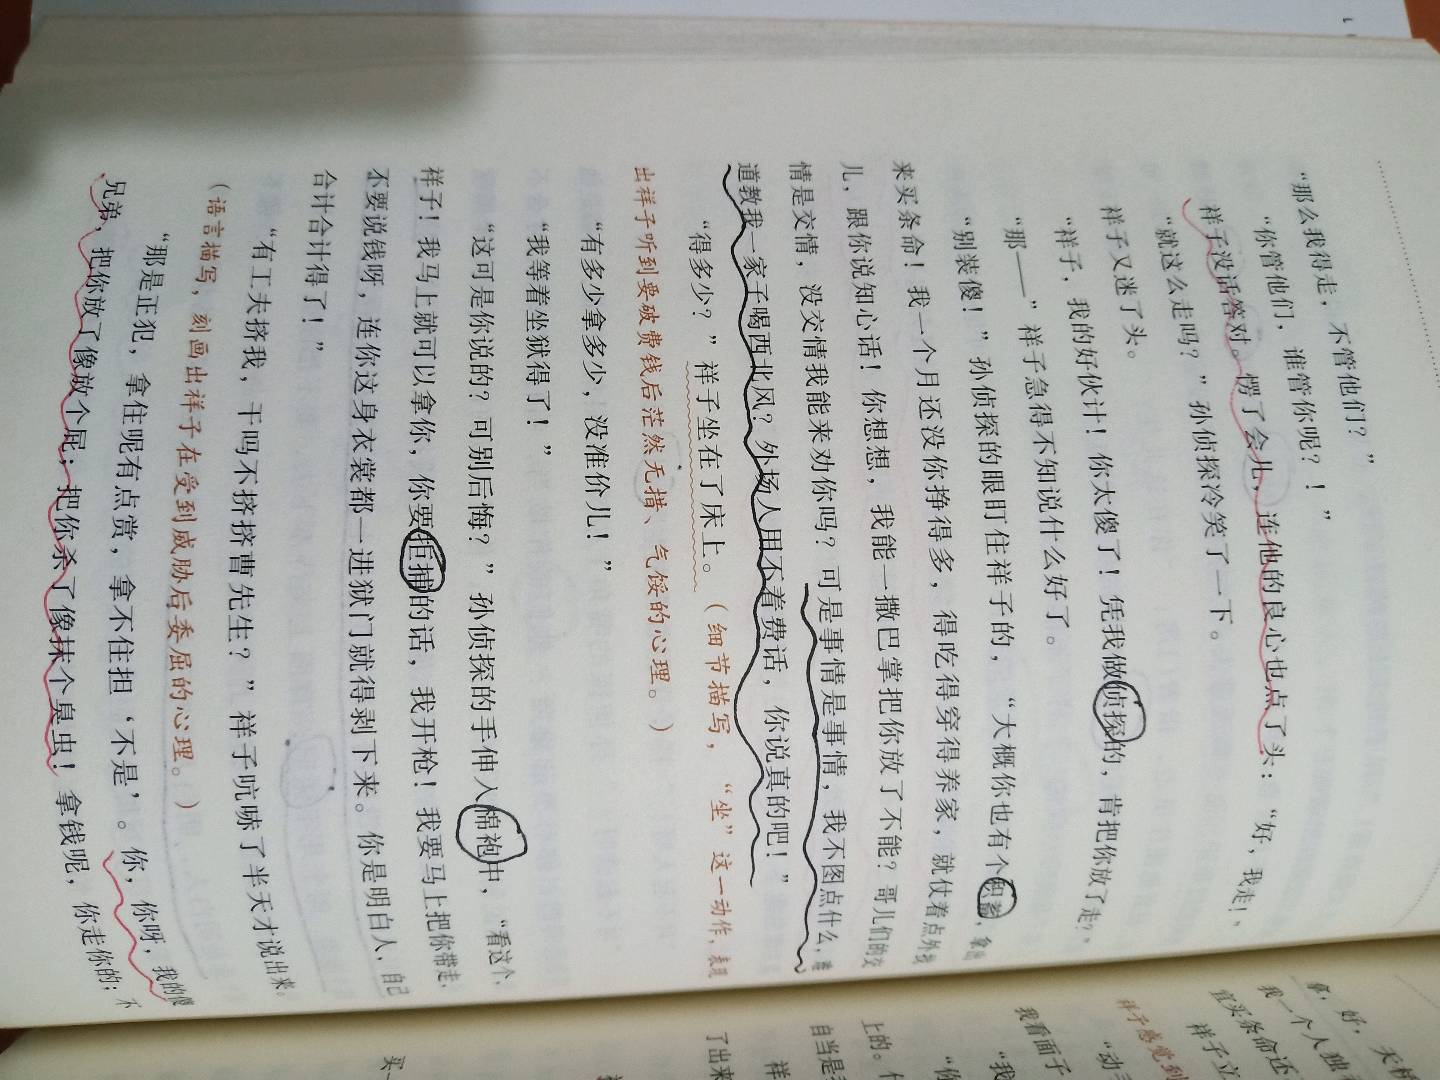 “那么我得走，不管他们？”
“你管他们，谁管你呢？！”
祥子没话答对。愣了会儿，连他的良心也点了头：“好，我走！”
“就这么走吗？”孙侦探冷笑了一下。
祥子又迷了头。
“祥子，我的好伙计！你太傻了！凭我做侦探的，肯把你放了走？”
“那——”祥子急得不知说什么好了。
“别装傻！”孙侦探的眼盯住祥子的，“大概你也有个积蓄，拿出
来买条命！我一个月还没你挣得多，得吃得穿得养家，就仗着点外找
儿，跟你说知心话！你想想，我能一撒巴掌把你放了不能？哥儿们的交
情是交情，没交情我能来劝你吗？可是事情是事情，我不图点什么，难
道教我一家子喝西北风？外场人用不着费话，你说真的吧！”
“得多少？”祥子坐在了床上。（细节描写，“坐”这一动作，表现
出祥子听到要破费钱后茫然无措、气馁的心理。）
“有多少拿多少，没准价儿！”
“我等着坐狱得了！”
“这可是你说的？可别后悔？”孙侦探的手伸入棉袍中，“看这个，
祥子！我马上就可以拿你，你要拒捕的话，我开枪！我要马上把你带走，
不要说钱呀，连你这身衣裳都一进狱门就得剥下来。你是明白人，自己
合计合计得了！”
“有工夫挤我，干吗不挤挤曹先生？”祥子吭哧了半天才说出来。
（语言描写，刻画出祥子在受到威胁后委屈的心理。）
“那是正犯，拿住呢有点赏，拿不住担‘不是’。你，你呀，我的傻
兄弟，把你放了像放个屁；把你杀了像抹个臭虫！拿钱呢，你走你的；不
我一个人独
值买条命还
祥子立
祥子感觉到
“动
我看面子
“我
“你
上的。什
自当是
祥
了出来
买一